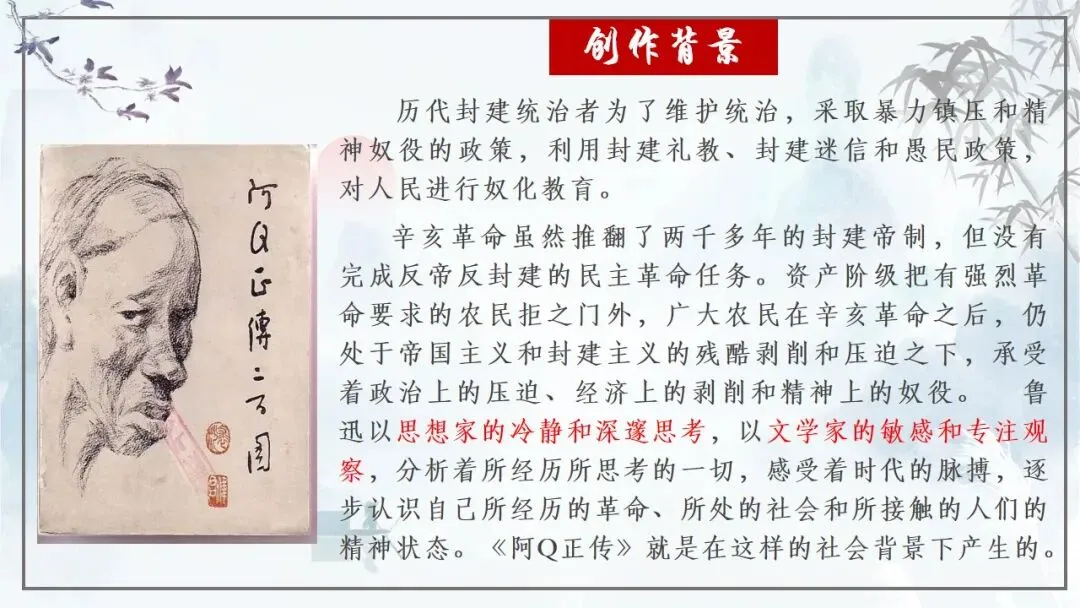 创作背景
历代封建统治者为了维护统治，采取暴力镇压和精
神奴役的政策，利用封建礼教、封建迷信和愚民政策，
对人民进行奴化教育。
辛亥革命虽然推翻了两千多年的封建帝制，但没有
完成反帝反封建的民主革命任务。资产阶级把有强烈革
命要求的农民拒之门外，广大农民在辛亥革命之后，仍
处于帝国主义和封建主义的残酷剥削和压迫之下，承受
着政治上的压迫、经济上的剥削和精神上的奴役。 鲁
迅以思想家的冷静和深邃思考，以文学家的敏感和专注观
察，分析着所经历所思考的一切，感受着时代的脉搏，逐
步认识自己所经历的革命、所处的社会和所接触的人们的
精神状态。《阿Q正传》就是在这样的社会背景下产生的。
阿Q正傳二百圖